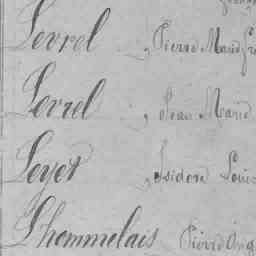 Levrel, Pierre Marie Fr
Levrel, Jean Marie
Leyet, Isidore Louis
Lhommelais Pierre Ang